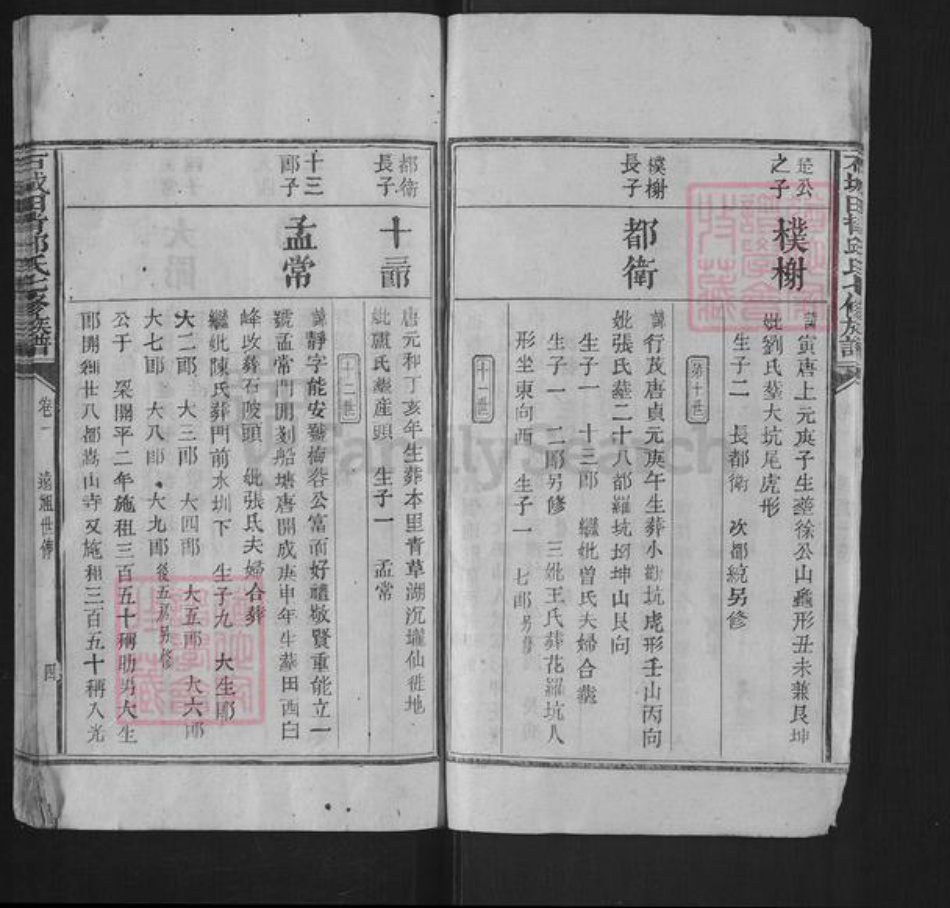 是公
之子
樸榭
諱寅唐上元庚子生塟徐公山龜形丑未兼艮坤
妣劉氏塟大坑尾虎形
生子二 長都衛 次都統另修
第十世
樸榭
長子
都衛
諱行茂唐貞元庚午生葬小歡坑虎形壬山丙向
妣張氏塟二十八都羅坑坳坤山艮向
生子一 十三郎 繼妣曾氏夫婦合塟
生子一 二郎另修 三妣王氏葬花羅坑人
形坐東向西 生子一 七郎另修
十一世
都衛
長子
十三郎
唐元和丁亥年生葬本里青草湖沉壠仙徙地
妣盧氏塟産頭 生子一 孟常
十二世
十三
郎子
孟常
諱靜字能安號梅谷公富而好禮敬賢重能立一
號孟常門開剗船塘唐開成庚申年生葬田西白
峰改葬石陂頭 妣張氏夫婦合葬
繼妣陳氏葬門前水圳下 生子九 大生郎
大二郎 大三郎 大四郎 大五郎 大六郎
大七郎 大八郎 大九郎後五房另修
公于 梁開平二年施租三百五十稱助男大生
郎開剏廿八都嵩山寺又施租三百五十稱入光
石城田背邱氏七修族譜
卷一
遠祖世傳
四
FamilySearch